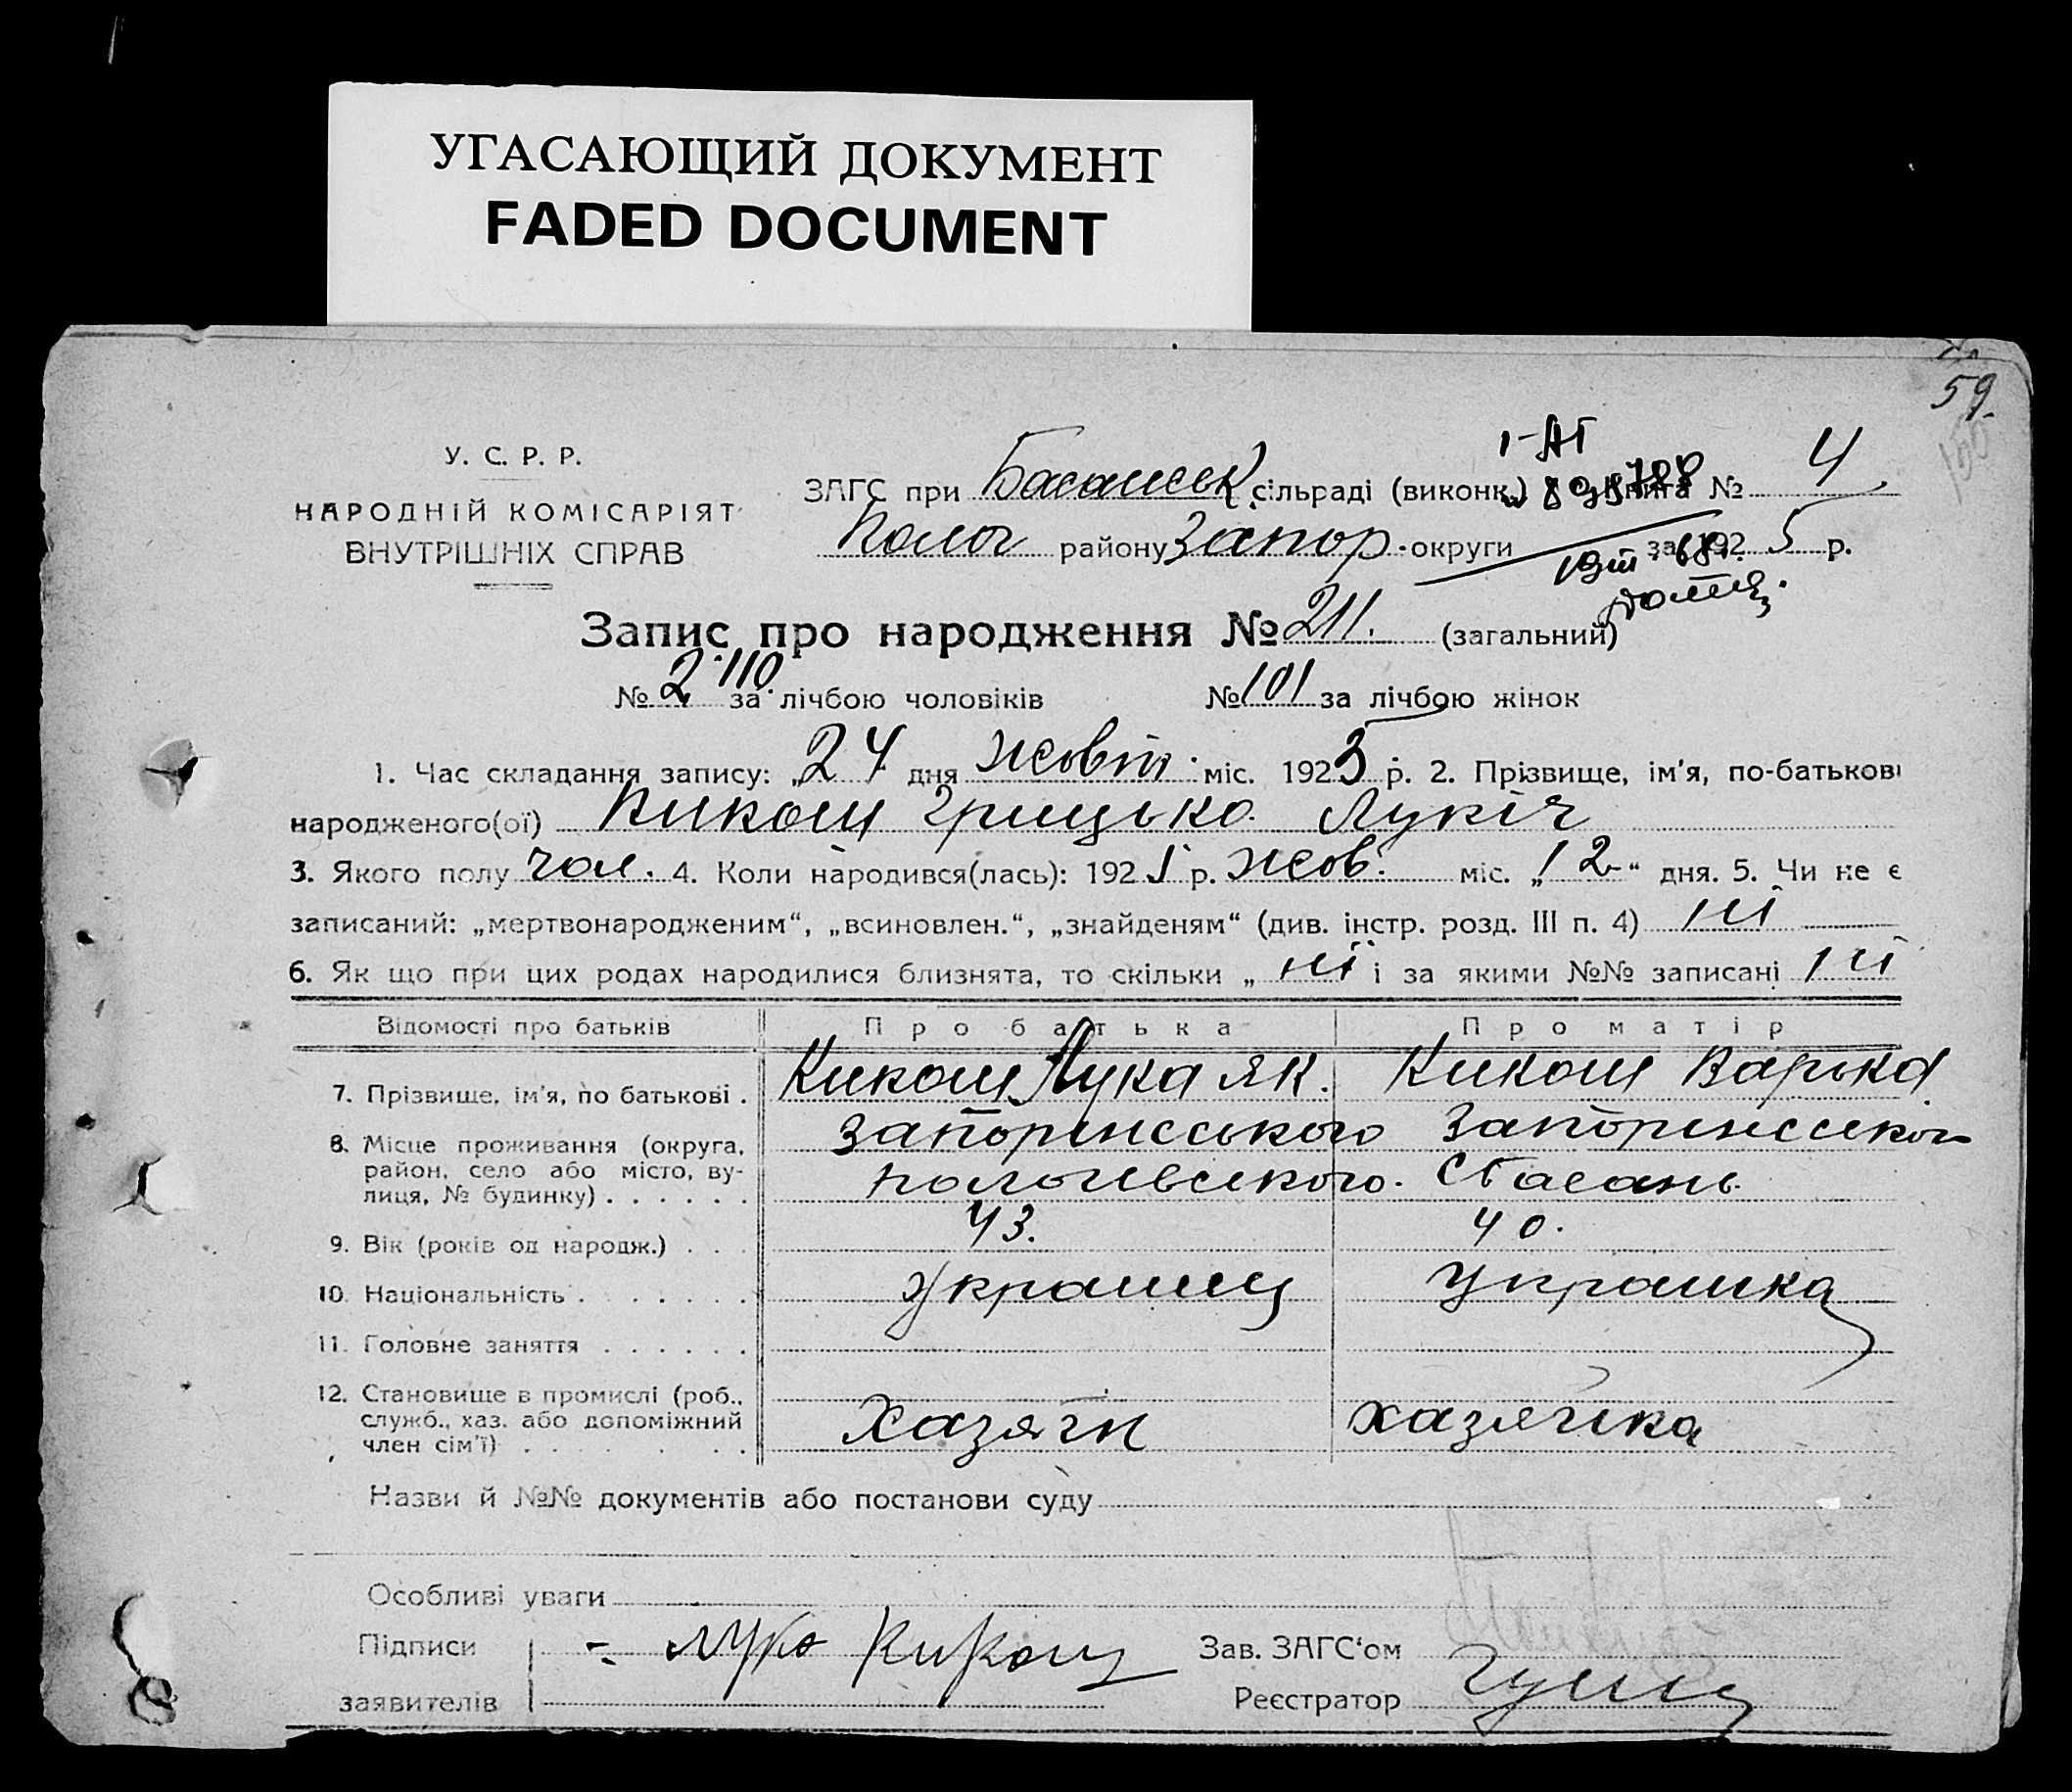 УГАСАЮЩИЙ ДОКУМЕНТ
FADED DOCUMENT
59.
У. С. Р. Р.
НАРОДНІЙ КОМІСАРІЯТ
ВНУТРІШНІХ СПРАВ
ЗАГС при Басанськ сільраді (виконк.) Книга № 4
Полог району Запор. округи за 1925 р.
Запис про народження № 211. (загальний)
№ 110 за лічбою чоловіків № 101 за лічбою жінок
1. Час складання запису: „24 дня жовт. міс. 1925 р. 2. Прізвище, ім'я, по-батькові
народженого(ої) Кикош Грицько Лукіч
3. Якого полу чол. 4. Коли народився(лась): 1925 р. жов. міс. „12“ дня. 5. Чи не є
записаний: „мертвонародженим“, „всиновлен.“, „знайденям“ (див. інстр. розд. III п. 4) ні
6. Як що при цих родах народилися близнята, то скільки „ ні і за якими №№ записані ні
Відомості про батьків Про батька Про матір
7. Прізвище, ім'я, по батькові . Кикош Лука як. Кикош Варька
8. Місце проживання (округа, Запоріжського Запоріжського
район, село або місто, ву- пологівського. с Басань
лиця, № будинку) . . . . . .
9. Вік (років од народж.) . . . 43. 40.
10. Національність . . . . . . . Українец Українка
11. Головне заняття . . . . . .
12. Становище в промислі (роб.,
служб., хаз. або допоміжний Хазяїн хазяйка
член сім'ї) . . . . . . .
Назви й №№ документів або постанови суду
Особливі уваги
Підписи Лука Кикош Зав. ЗАГС'ом
заявителів Реєстратор